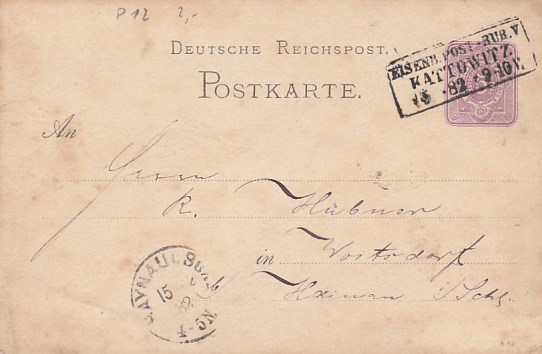 P 12 2,-
DEUTSCHE REICHSPOST.
POSTKARTE.
EISENB. POST-BUR. V
KATTOWITZ.
82 9-10 V.
An
Herrn
R. Hübner
in Woitsdorf
b Hainau i/Schl.
HAYNAU I.
15
82
4-5N.